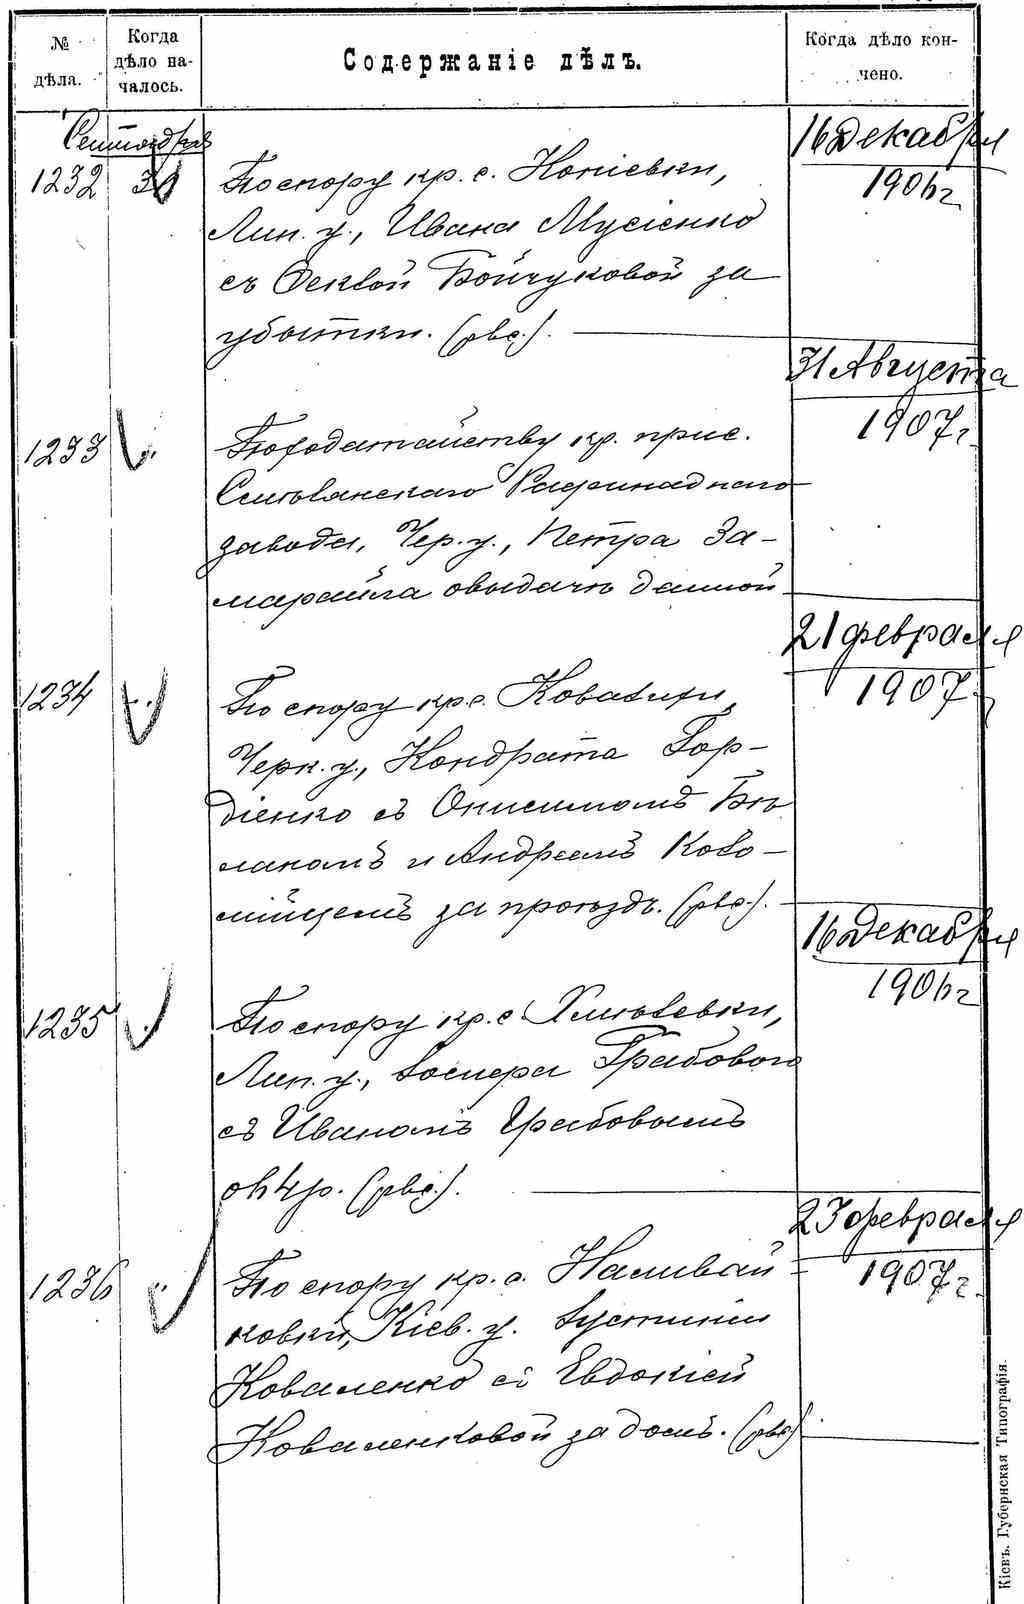 № дѣла.
Когда дѣло на-
чалось.
Содержаніе дѣлъ.
Когда дѣло кон-
чено.
Сентября
1232 30 По спору кр. с. Копіевки,
Лип. у., Ивана Мусіенко
съ Феклой Бойчуковой за
убытки. (рвс.).
16 Декабря
1906 г
1233 По ходатайству кр. прис.
Смѣлянскаго Рафинаднаго
завода, Чер. у., Петра За-
марайла о выдачѣ данной
31 Августа
1907 г.
1234 По спору кр. с.
Черк. у., Кондрата Гор-
діенко съ Онисимомъ Бѣ
лакомъ и Андреемъ Коло-
мійцемъ за проѣздъ. (рвс.).
21 февраля
1907
1235 По спору кр. с.
Лип. у., Грабового
съ Иваномъ Грабовымъ
(рвс.).
16 Декабря
1906 г
1236 По спору кр. с. Наливай-
ковки, Кіев. у. Іустиніи
Коваленко съ Евдокіей
Коваленковой за домъ. (рвс)
23 февраля
1907 г.
Кіевъ. Губернская Типографія.